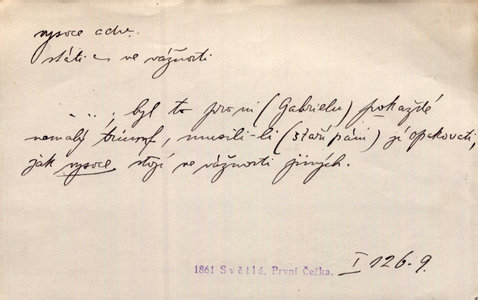 vysoce adv.
státi ve vážnosti
..., byl to pro ni (Gabrielu) pokaždé
nemalý triumf, musili-li (staří páni) jí opakovati,
jak vysoce stojí ve vážnosti jiných.
1861 Světlá, První Češka. I 126.9.